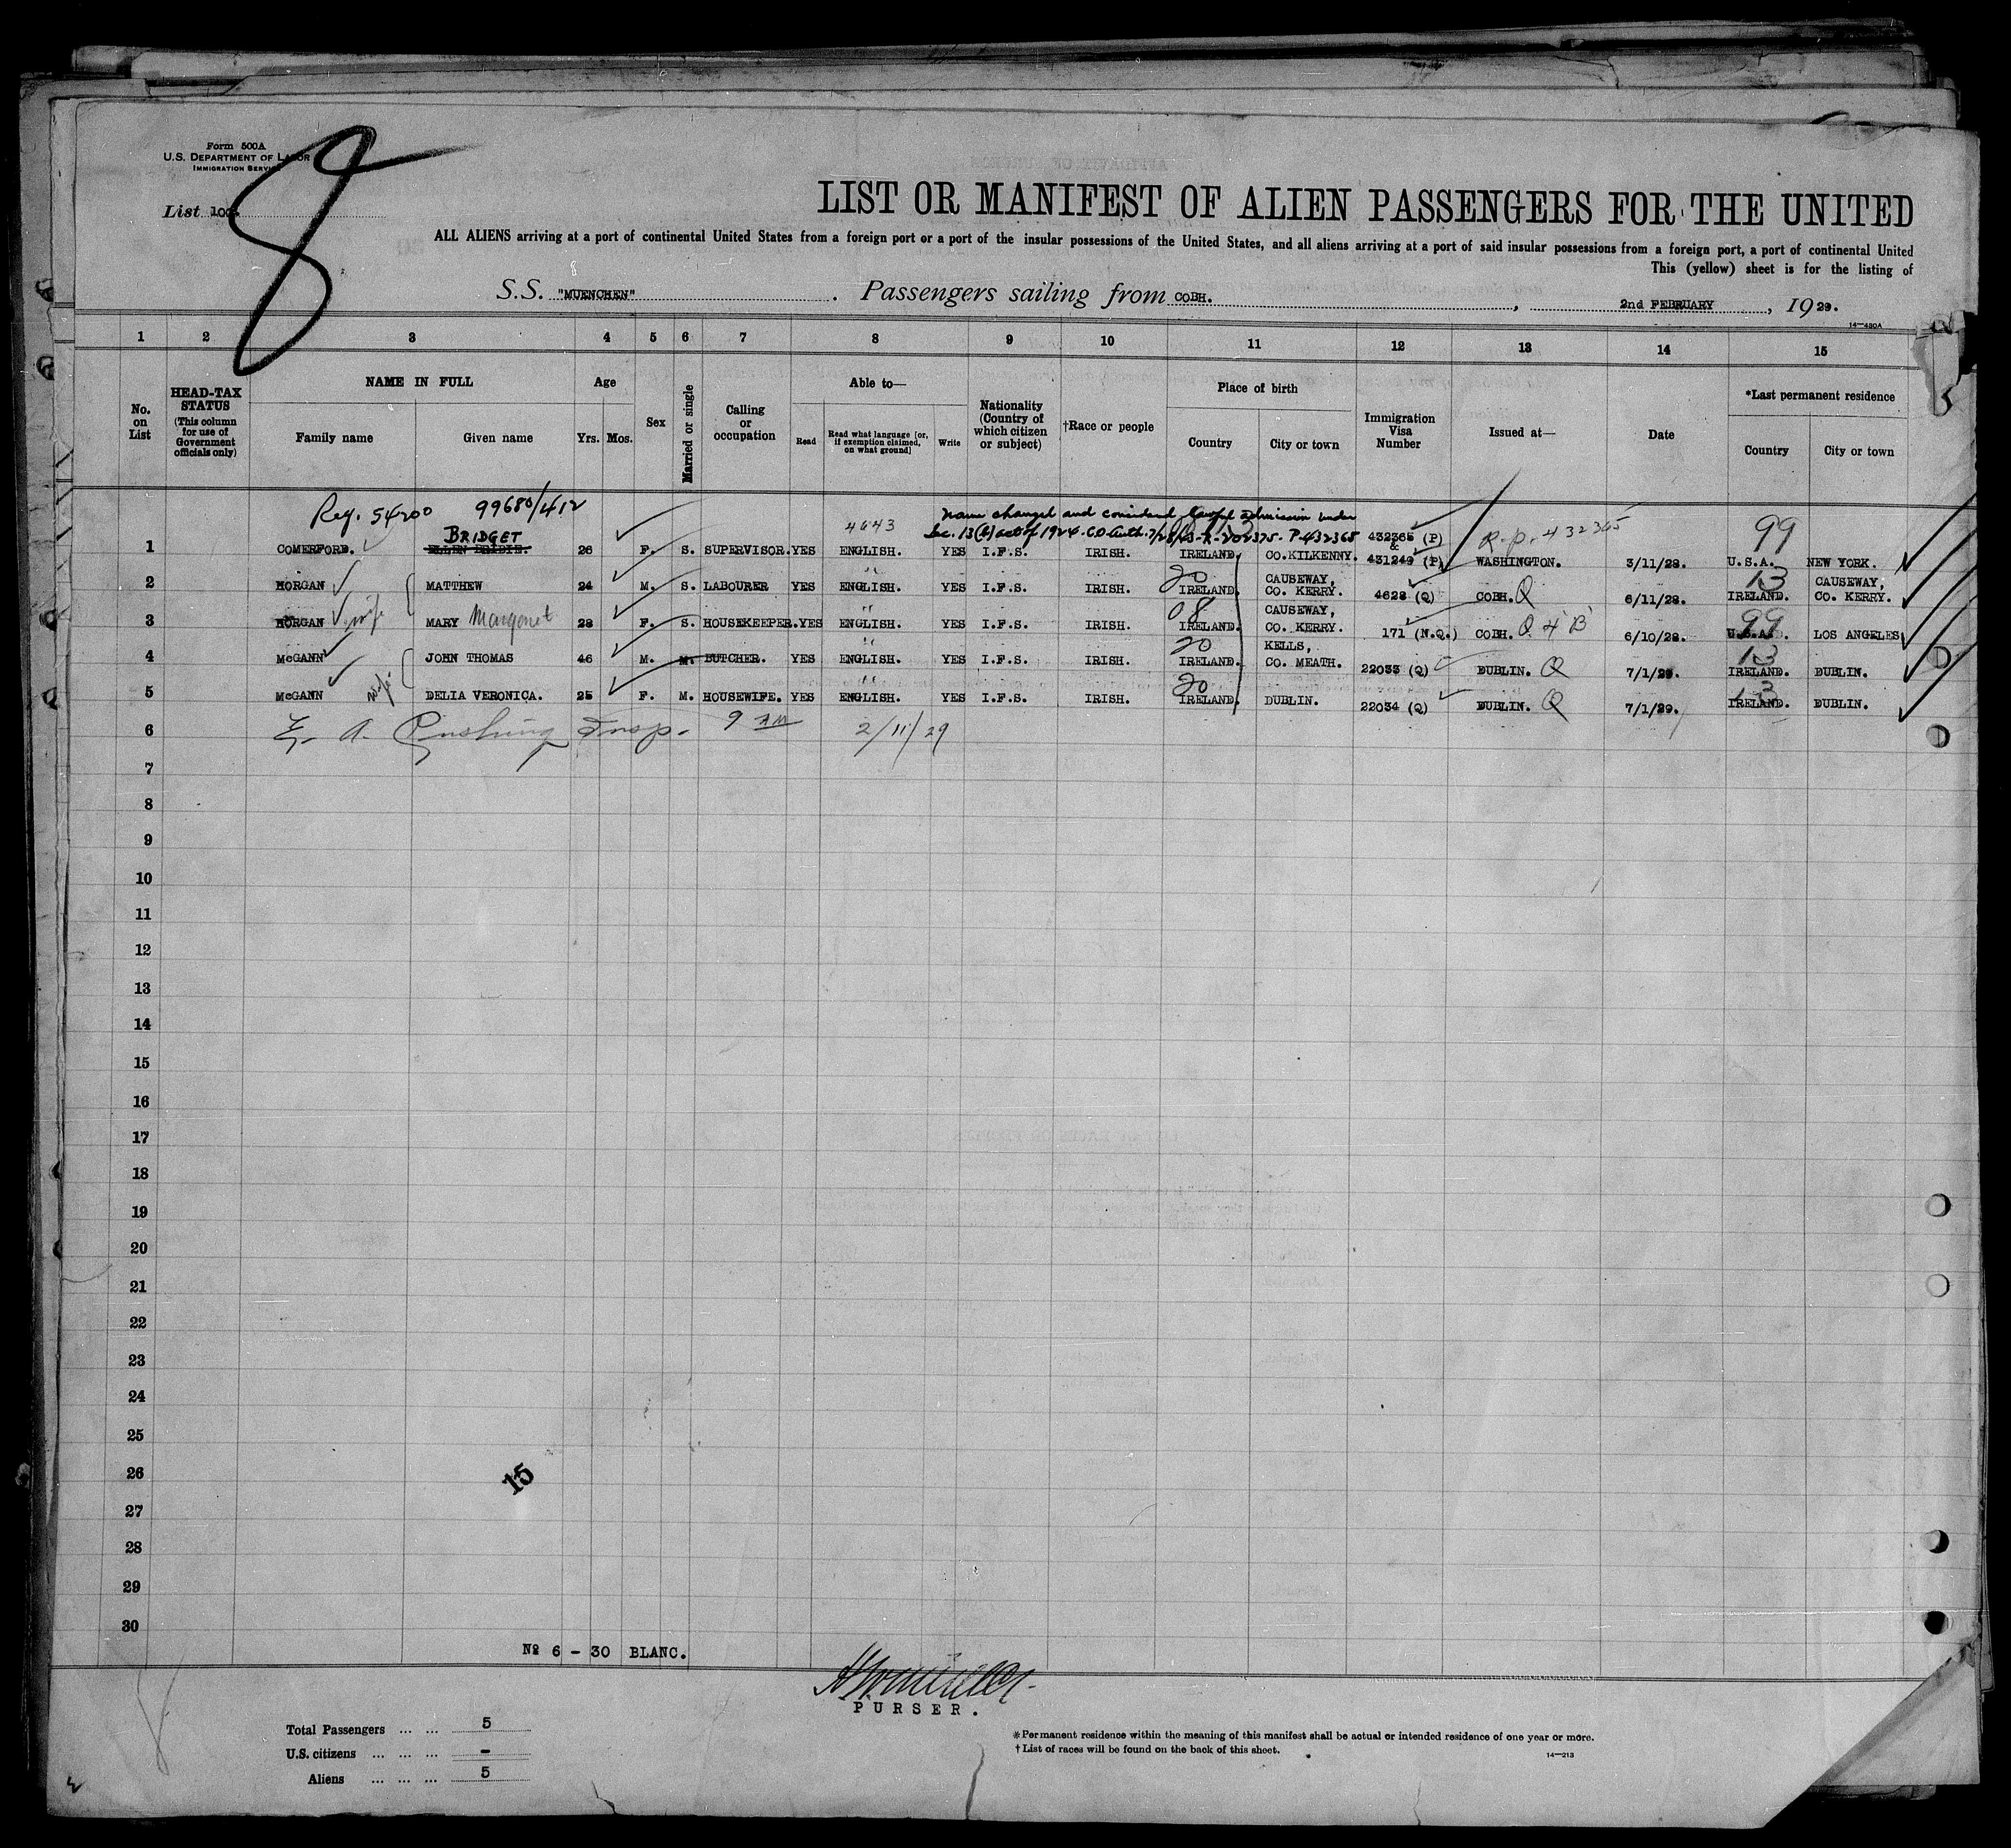 Form 500A
U.S. DEPARTMENT OF LABOR
IMMIGRATION SERVICE
8
List 100
LIST OR MANIFEST OF ALIEN PASSENGERS FOR THE UNITED
ALL ALIENS arriving at a port of continental United States from a foreign port or a port of the insular possessions of the United States, and all aliens arriving at a port of said insular possessions from a foreign port, a port of continental United
This (yellow) sheet is for the listing of
S.S. "MUENCHEN" . Passengers sailing from COBH. , 2nd FEBRUARY , 19 29.
14—430A
1 2 3 4 5 6 7 8 9 10 11 12 13 14 15
No. on List
HEAD-TAX STATUS (This column for use of Government officials only)
NAME IN FULL
Family name Given name
Age
Yrs. Mos.
Sex
Married or single
Calling or occupation
Able to—
Read Read what language [or, if exemption claimed, on what ground] Write
Nationality (Country of which citizen or subject)
†Race or people
Place of birth
Country City or town
Immigration Visa Number
Issued at—
Date
*Last permanent residence
Country City or town
Reg. 54200 99680/412
Name changed and considered lawful admission under
4643 Sec. 13(b) act of 1924. CO Auth. 7/28/43-R-202375- P-432365
1 COMERFORD. BRIDGET ELLEN BRIDIE. 26 F. S. SUPERVISOR. YES ENGLISH. YES I.F.S. IRISH. IRELAND. CO.KILKENNY. 432365 (P) & 431249 (P) R.P. 432365 WASHINGTON. 3/11/28. 99 U.S.A. NEW YORK.
2 MORGAN MATTHEW 24 M. S. LABOURER YES ENGLISH. YES I.F.S. IRISH. 20 IRELAND. CAUSEWAY, CO. KERRY. 4628 (Q) COBH. Q 6/11/28. 13 IRELAND. CAUSEWAY, CO. KERRY.
3 MORGAN wife MARY Margaret 28 F. S. HOUSEKEEPER. YES ENGLISH. YES I.F.S. IRISH. 08 IRELAND. CAUSEWAY, CO. KERRY. 171 (N.Q.) COBH. Q 4 B 6/10/28. 99 U.S.A. LOS ANGELES
4 McGANN JOHN THOMAS 46 M. M. BUTCHER. YES ENGLISH. YES I.F.S. IRISH. 20 IRELAND. KELLS, CO. MEATH. 22033 (Q) DUBLIN. Q 7/1/29. 13 IRELAND. DUBLIN.
5 McGANN wife DELIA VERONICA. 25 F. M. HOUSEWIFE. YES ENGLISH. YES I.F.S. IRISH. 20 IRELAND. DUBLIN. 22034 (Q) DUBLIN. Q 7/1/29. 13 IRELAND. DUBLIN.
6 Insp. 9 AM 2/11/29
7
8
9
10
11
12
13
14
15
16
17
18
19
20
21
22
23
24
25
26
15
27
28
29
30
№ 6 - 30 BLANC.
PURSER.
Total Passengers ... ... 5
U.S. citizens ... ... ... -
Aliens ... ... ... 5
*Permanent residence within the meaning of this manifest shall be actual or intended residence of one year or more.
†List of races will be found on the back of this sheet.
14—213